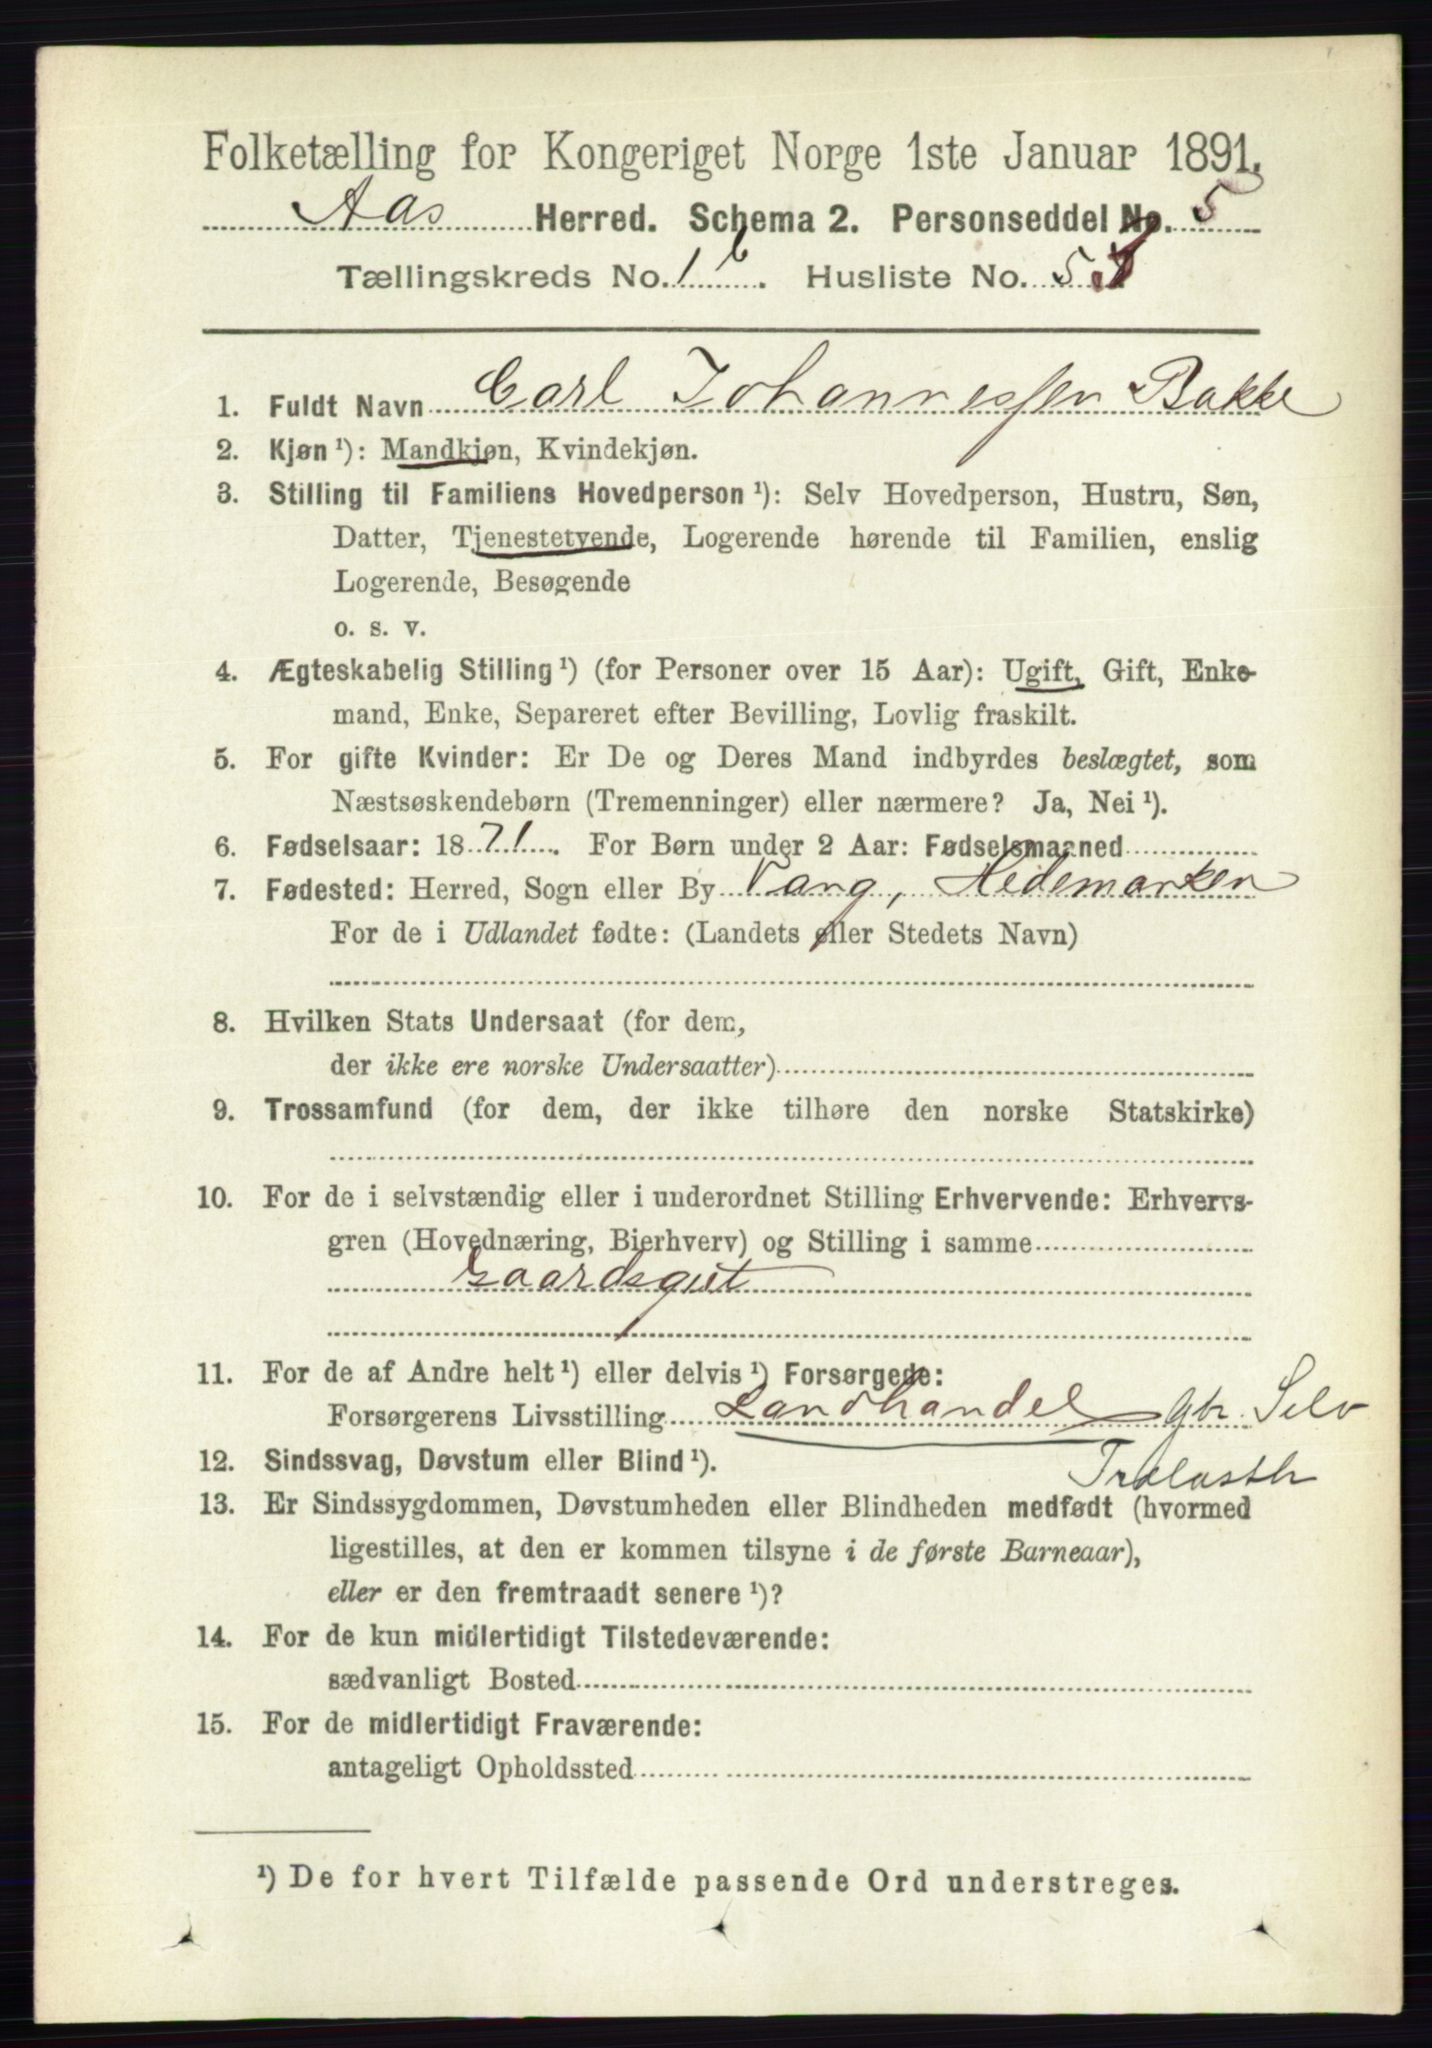 Folketælling for Kongeriget Norge 1ste Januar 1891.
Aas Herred. Schema 2. Personseddel No. 5
Tællingskreds No. 1 b. Husliste No. 5
1. Fuldt Navn Carl Johannessen Bakke
2. Kjøn ¹): Mandkjøn, Kvindekjøn.
3. Stilling til Familiens Hovedperson ¹): Selv Hovedperson, Hustru, Søn,
Datter, Tjenestetyende, Logerende hørende til Familien, enslig
Logerende, Besøgende
o. s. v.
4. Ægteskabelig Stilling ¹) (for Personer over 15 Aar): Ugift, Gift, Enke-
mand, Enke, Separeret efter Bevilling, Lovlig fraskilt.
5. For gifte Kvinder: Er De og Deres Mand indbyrdes beslægtet, som
Næstsøskendebørn (Tremenninger) eller nærmere? Ja, Nei ¹).
6. Fødselsaar: 1871. For Børn under 2 Aar: Fødselsmaaned
7. Fødested: Herred, Sogn eller By Vang, Hedemarken
For de i Udlandet fødte: (Landets eller Stedets Navn)
8. Hvilken Stats Undersaat (for dem,
der ikke ere norske Undersaatter)
9. Trossamfund (for dem, der ikke tilhøre den norske Statskirke)
10. For de i selvstændig eller i underordnet Stilling Erhvervende: Erhvervs-
gren (Hovednæring, Bierhverv) og Stilling i samme
Gaardsgut
11. For de af Andre helt ¹) eller delvis ¹) Forsørgede:
Forsørgerens Livsstilling Landhandel gbr. Selv
Trælasth
12. Sindssvag, Døvstum eller Blind ¹).
13. Er Sindssygdommen, Døvstumheden eller Blindheden medfødt (hvormed
ligestilles, at den er kommen tilsyne i de første Barneaar),
eller er den fremtraadt senere ¹)?
14. For de kun midlertidigt Tilstedeværende:
sædvanligt Bosted
15. For de midlertidigt Fraværende:
antageligt Opholdssted
¹) De for hvert Tilfælde passende Ord understreges.